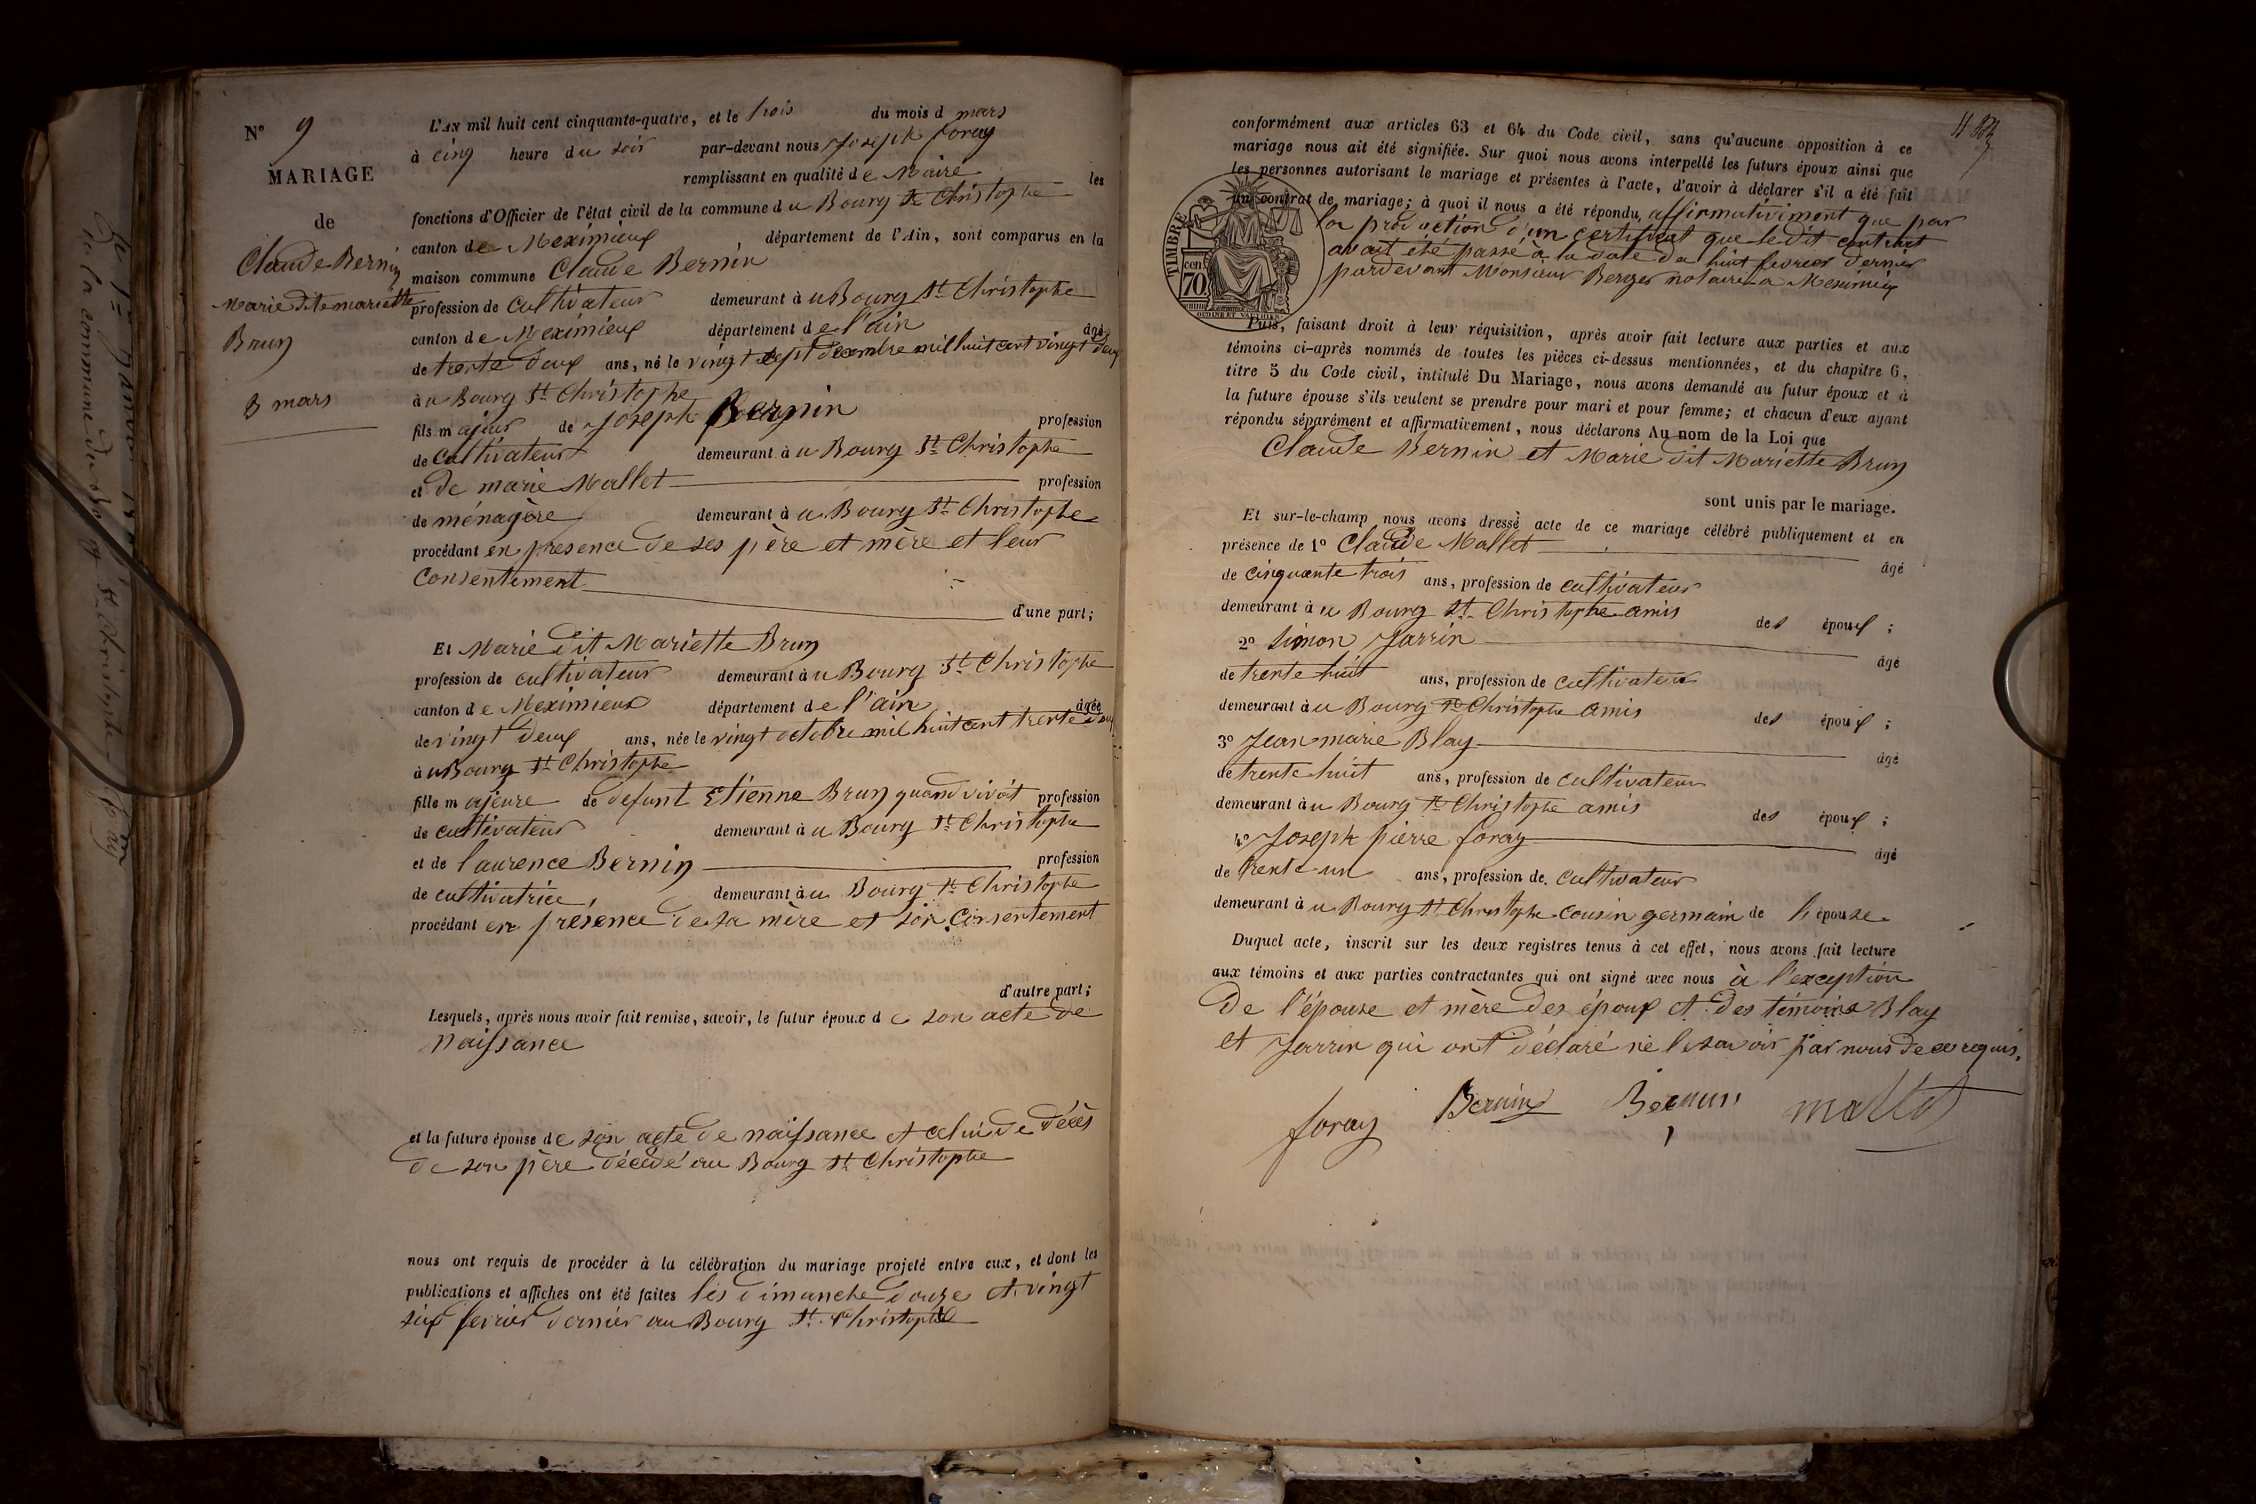 N° 9
MARIAGE
de
Claude Bernin
Marie dite mariette
Brun
3 mars
L'AN mil huit cent cinquante-quatre, et le trois du mois d mars
à cinq heure du soir par-devant nous Joseph foray
remplissant en qualité de Maire les
fonctions d'Officier de l'état civil de la commune du Bourg St Christophe
canton de Meximieux département de l'Ain, sont comparus en la
maison commune Claude Bernin
profession de cultivateur demeurant à u Bourg St Christophe
canton de Meximieux département de l'ain âgé
de trente deux ans, né le vingt sept decembre mil huit cent vingt deux
à u Bourg St Christophe
fils majeur de Joseph Bernin profession
de cultivateur demeurant à u Bourg St Christophe
et de marie Mallet profession
de ménagère demeurant à u Bourg St Christophe
procédant en presence de ses père et mère et leur
consentement
d'une part;
Et Marie dit Mariette Brun
profession de cultivateur demeurant à u Bourg St Christophe
canton de Meximieux département de l'ain âgée
de vingt deux ans, née le vingt octobre mil huit cent trente deux
à u Bourg St Christophe
fille majeure de defunt Etienne Brun quand vivoit profession
de cultivateur demeurant à u Bourg St Christophe
et de laurence Bernin profession
de cultivatrice demeurant à u Bourg St Christophe
procédant en présence de sa mère et son consentement
d'autre part;
Lesquels, après nous avoir fait remise, savoir, le futur époux de son acte de
naissance
et la future épouse de son acte de naissance et celui de décès
de son père décédé au Bourg St Christophe
nous ont requis de procéder à la célébration du mariage projeté entre eux, et dont les
publications et affiches ont été faites les dimanche douze et vingt
six fevrier dernier au Bourg St Christophe
conformément aux articles 63 et 64 du Code civil, sans qu'aucune opposition à ce
mariage nous ait été signifiée. Sur quoi nous avons interpellé les futurs époux ainsi que
les personnes autorisant le mariage et présentes à l'acte, d'avoir à déclarer s'il a été fait
un contrat de mariage; à quoi il nous a été répondu, affirmativiment que par
la production d'un certificat que le dit contract
avait été passé à la date du huit fevrier dernier
pardevant Monsieur Berger notaire a Meximieux
TIMBRE
cen
70
Puis, faisant droit à leur réquisition, après avoir fait lecture aux parties et aux
témoins ci-après nommés de toutes les pièces ci-dessus mentionnées, et du chapitre 6,
titre 5 du Code civil, intitulé Du Mariage, nous avons demandé au futur époux et à
la future épouse s'ils veulent se prendre pour mari et pour femme; et chacun d'eux ayant
répondu séparément et affirmativement, nous déclarons Au nom de la Loi que
Claude Bernin et Marie dit Mariette Brun
sont unis par le mariage.
Et sur-le-champ nous avons dressé acte de ce mariage célébré publiquement et en
présence de 1° Claude Mallet âgé
de cinquante trois ans, profession de cultivateur
demeurant à u Bourg St Christophe amis des époux ;
2° Simon Jarrin âgé
de trente huit ans, profession de cultivateur
demeurant à u Bourg St Christophe amis des époux ;
3° Jean marie Blay âgé
de trente huit ans, profession de cultivateur
demeurant à u Bourg St Christophe amis des époux ;
4° Joseph pierre foray âgé
de trente un ans, profession de cultivateur
demeurant à u Bourg St Christophe cousin germain de l'épouse
Duquel acte, inscrit sur les deux registres tenus à cet effet, nous avons fait lecture
aux témoins et aux parties contractantes qui ont signé avec nous à l'exception
de l'épouse et mère des époux et des témoins Blay
et Jarrin qui ont déclaré ne le savoir par nous de ce requis.
foray Bernin Bernin mallet